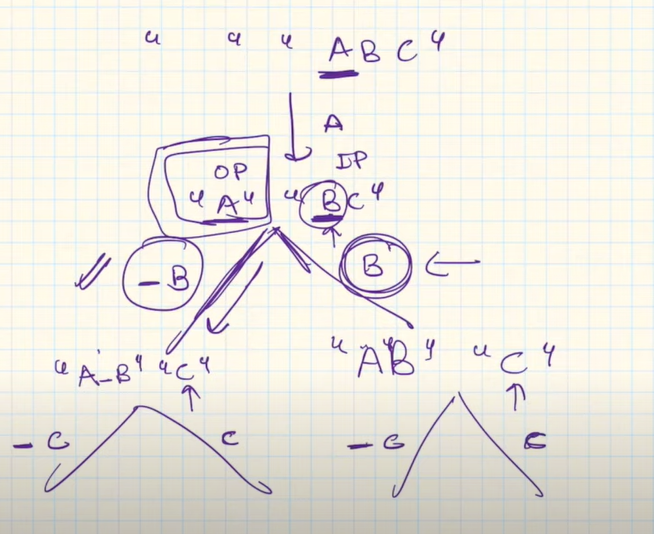 " " " ABC "
A
OP IP
"A" "BC"
_B B
"A_B" "C" "AB" "C"
_C C _C C